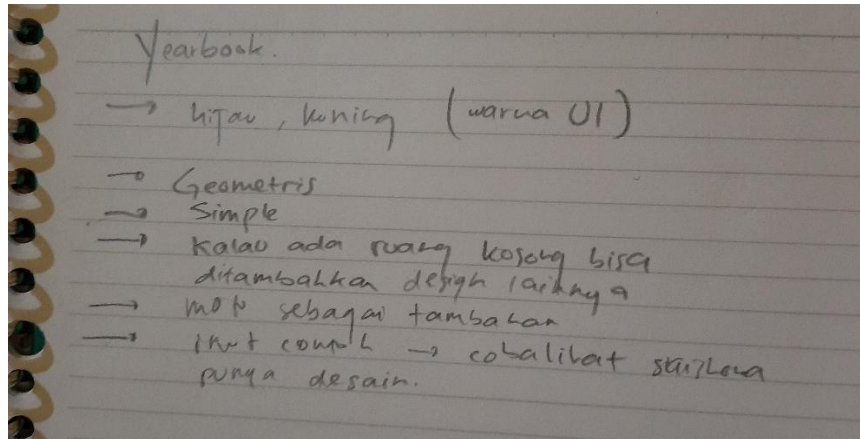 Yearbook.
→ hijau, kuning (warna UI)
→ Geometris
→ Simple
→ Kalau ada ruang kosong bisa
ditambahkan design lainnya
→ sebagai tambahan
→ → coba lihat
punya desain.